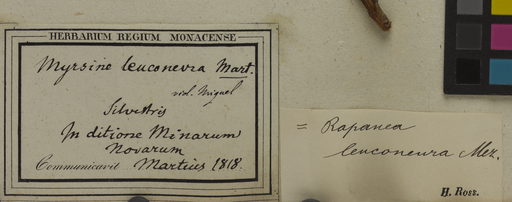 HERBARIUM REGIUM MONACENSE
Myrsine leuconeura Mart.
vid. Miquel
Silvestris
In ditione Minarum
Novarum
Communicavit Martius 1818.
= Rapanea
leuconeura Mez.
H. Ross.